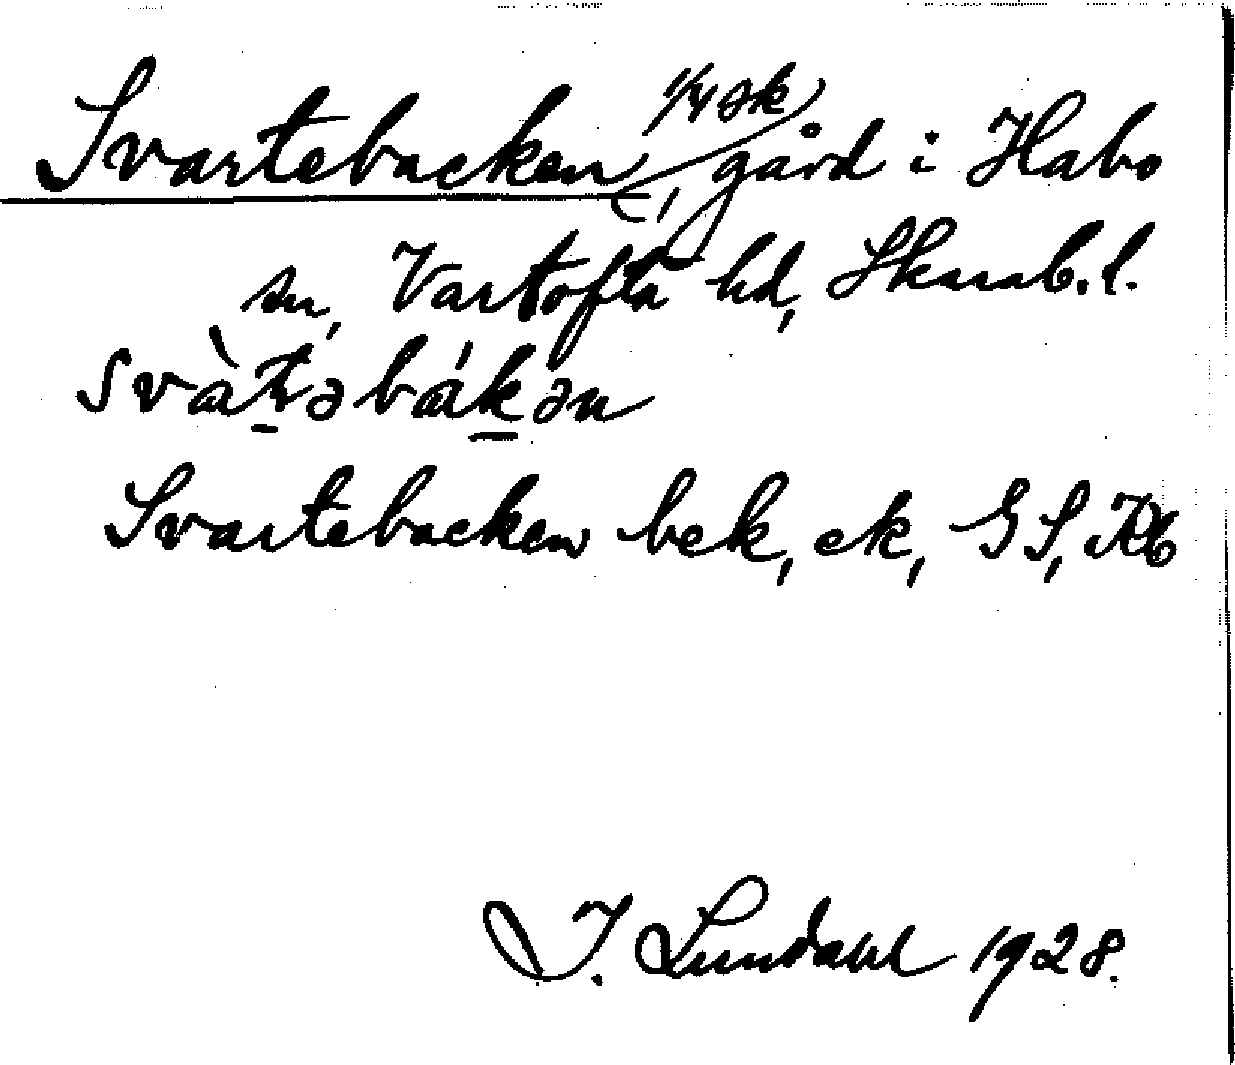 Svartebacken, 1/4 sk, gård i Habo
sn, Vartofta hd, Skarab. l.
Svartebacken bek, ek, GS, Rb
I. Lundahl 1928.